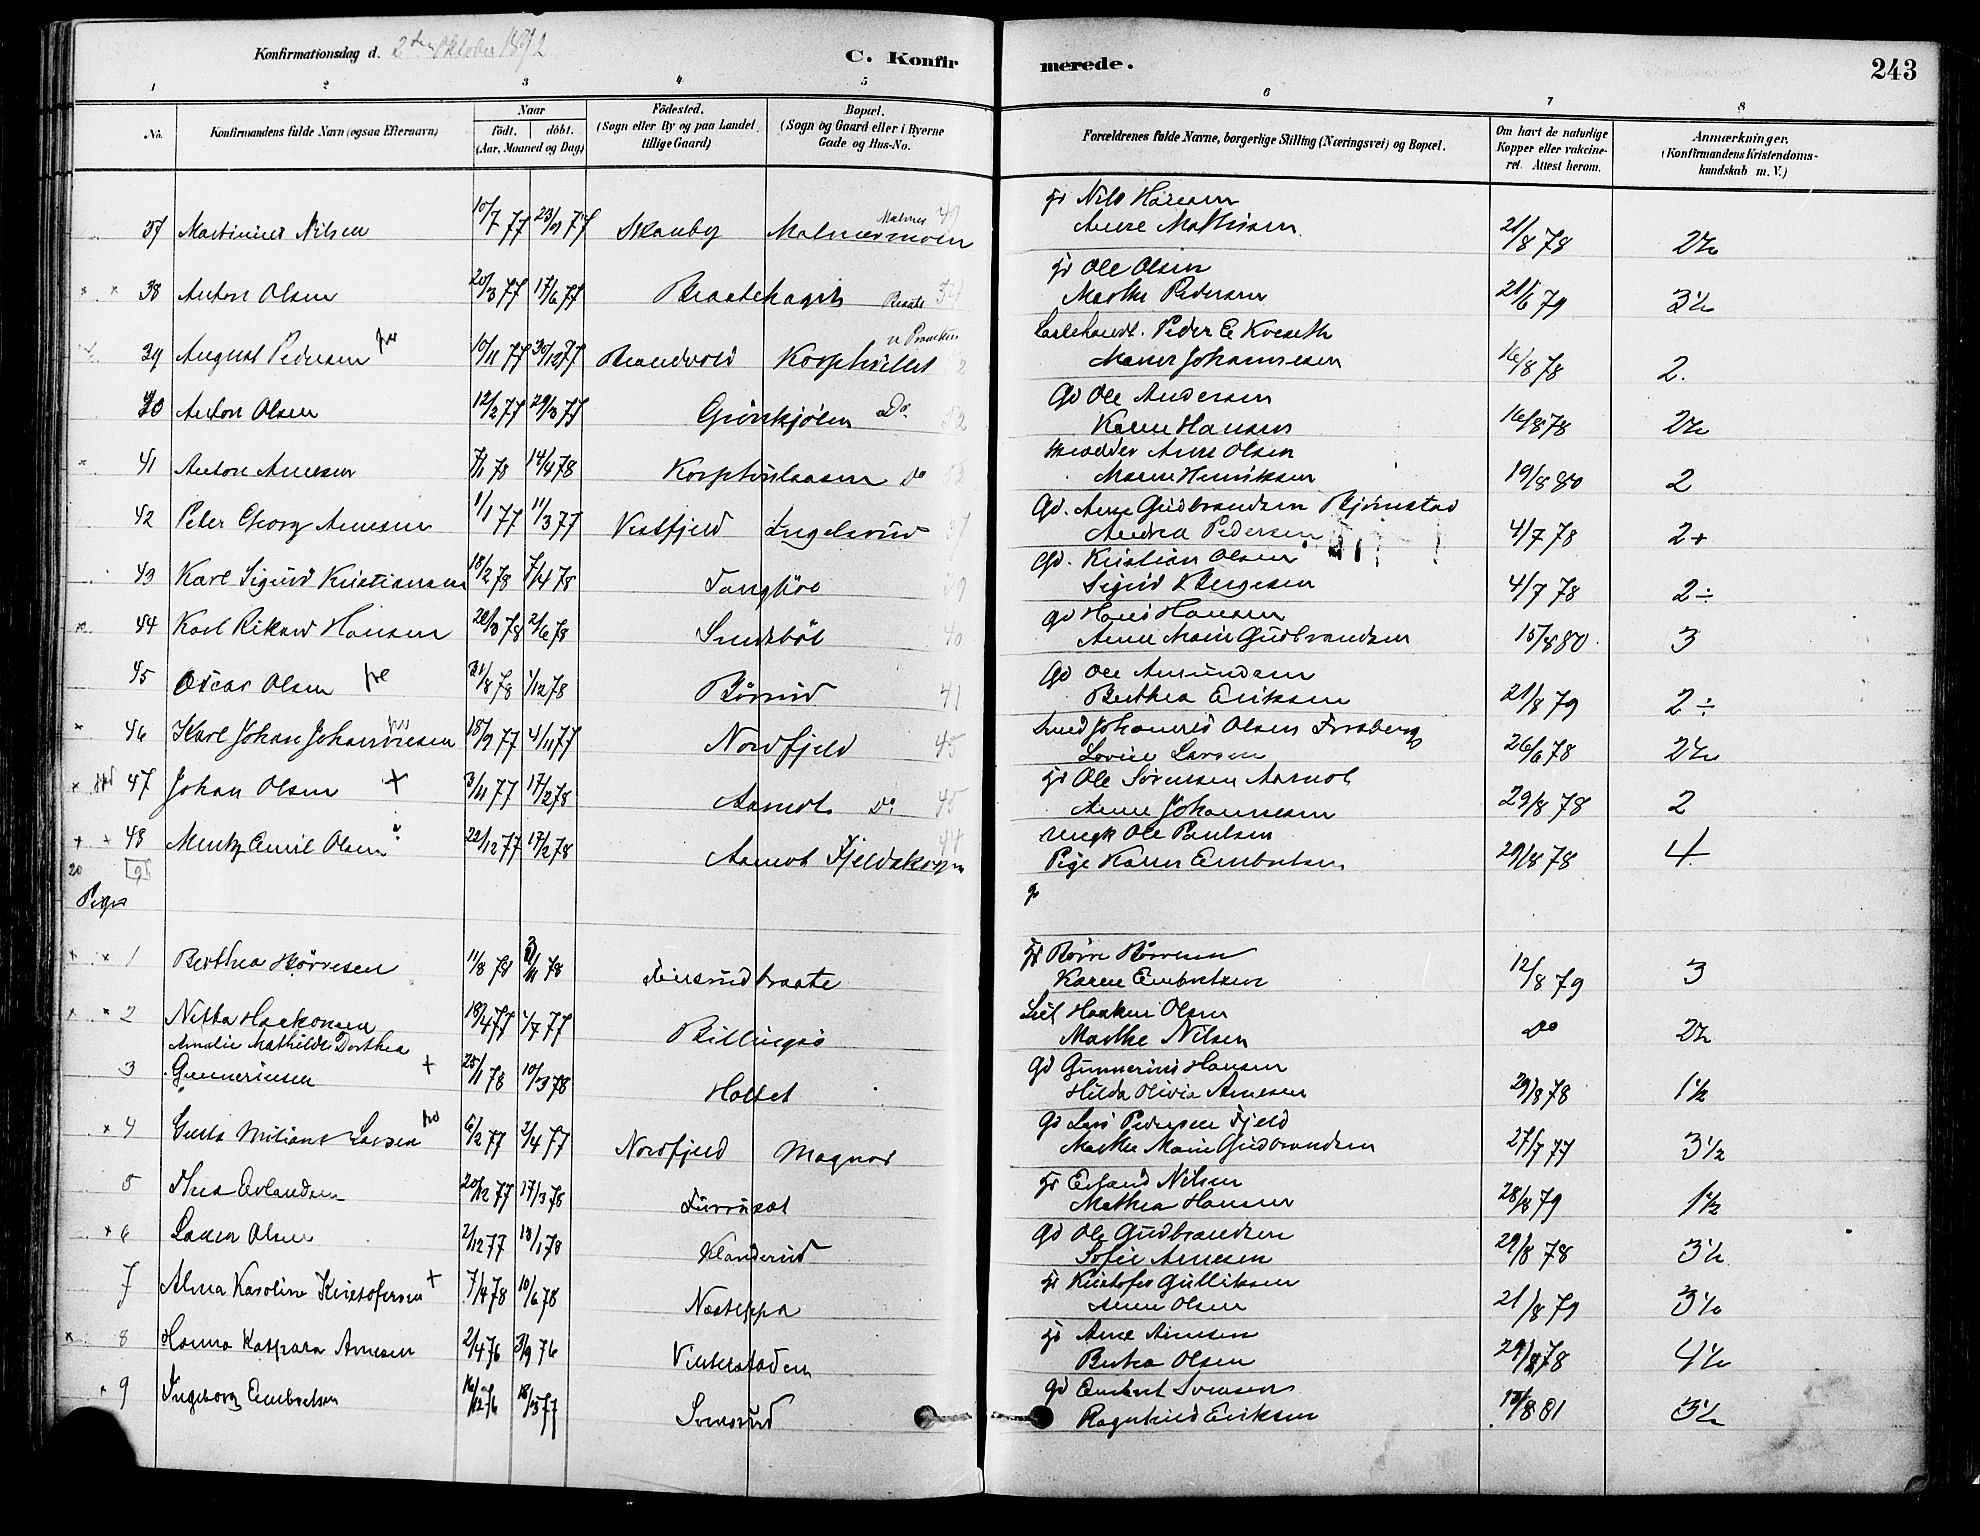 Konfirmationsdag d. 2den Oktober 1892
C. Konfirmerede.
243
1 2 3 4 5 6 7 8
No.
Konfirmandens fulde Navn (ogsaa Efternavn)
Naar
födt. döbt.
(Aar, Maaned og Dag)
Födested.
(Sogn eller By og paa Landet tillige Gaard)
Bopæl.
(Sogn og Gaard eller i Byerne Gade og Hus-No.
Forældrenes fulde Navne, borgerlige Stilling (Næringsvei) og Bopæl.
Om havt de naturlige Kopper eller vakcineret. Attest herom.
Anmærkninger.
(Konfirmandens Kristendomskundskab m. V.)
37 Martinius Nilsen 10/7 77 Skanby Malmermoen Nils Hansen
Anne Mathisen 21/8 78 2½
38 Anton Olsen 20/3 77 17/6 77 Braatehagen Ole Olsen
Marthe Pedersen 21/6 79 3½
39 August Pedersen 10/11 77 30/12 77 Brandvold Peder E Kveseth
Maren Johannesen 16/8 78 2.
40 Anton Olsen 12/2 77 29/3 77 Grönkjölen Do. Gd Ole Andersen
Karen Hansen 16/8 78 2½
41 Anton Arnesen 7/1 78 14/4 78 Do Arne Olsen
Maren Henriksen 19/8 80 2
42 Peter Georg Arnesen 1/1 77 11/3 77 Vestfjeld Ingelsrud Gd. Arne Gudbrandsen Bjørnstad
Andrea Pedersen 4/7 78 2+
43 Karl Sigurd Kristiansen 18/2 78 7/4 78 Gd. Kristian Olsen
Sigrid Børgesen 4/7 78 2÷
44 Karl Rikard Hansen 20/3 78 2/6 78 Gd Hans Hansen
Anne Marie Gudbrandsen 15/8 80 3
45 Oscar Olsen 31/8 78 1/12 78 Børrud 41 Gd Ole Amundsen
Berthea Eriksen 21/8 79 2÷
46 Karl Johan Johannesen 18/9 77 4/11 77 Nordfjeld 45 Johannes Olsen Forsberg
Lovise Larsen 26/6 78 2½
47 Johan Olsen + 3/11 77 17/2 78 Aamot Do 45 Ole Sørensen Aamot
Anne Johannesen 29/8 78 2
48 Mentz Emil Olsen 22/12 77 17/2 78 Aamot Fjeldskogen 44 Ungk Ole Paulsen
Pige Karen Embretsen 29/8 78 4
20
Piger
1 Berthea Børresen 11/8 78 Finsrudbraate Børre Børresen
Karen Embretsen 12/8 79 3
2 Netta Haakonsen 18/4 77 1/7 77 Billingsø Haaken Olsen
Marthe Nilsen Do 2½
Amalie Mathilde Dorthea
3 Gunneriusen + 25/1 78 10/3 78 Holtet Gd Gunnerius Hansen
Hilda Olivia Arnesen 29/8 78 1½
4 Gusta Mitiane Larsen 6/2 77 2/4 77 Nordfjeld Magnor Gd Lars Pedersen Fjeld
Marthe Marie Gudbrandsen 27/7 77 3½
5 Erlandsen 20/12 77 17/3 78 Furuset Erland Nilsen
Mathea Hansen 28/8 79 1½
6 Laura Olsen 2/12 77 13/1 78 Klanderud Gd Ole Gudbrandsen
Sofie Arnesen 29/8 78 3½
7 Alma Karoline Kristofersen + 7/4 78 10/6 78 Næsteppa Kristofer Gulliksen
Anne Olsen 21/8 79 3½
8 Hanna Kaspara Arnesen 2/4 76 3/9 76 Arne Arnesen
Berthea Olsen 29/8 78 4½
9 Ingeborg Embretsen 16/12 76 18/3 77 Svensrud Gd Embret Svensen
Ragnhild Eriksen 15/8 81 3½